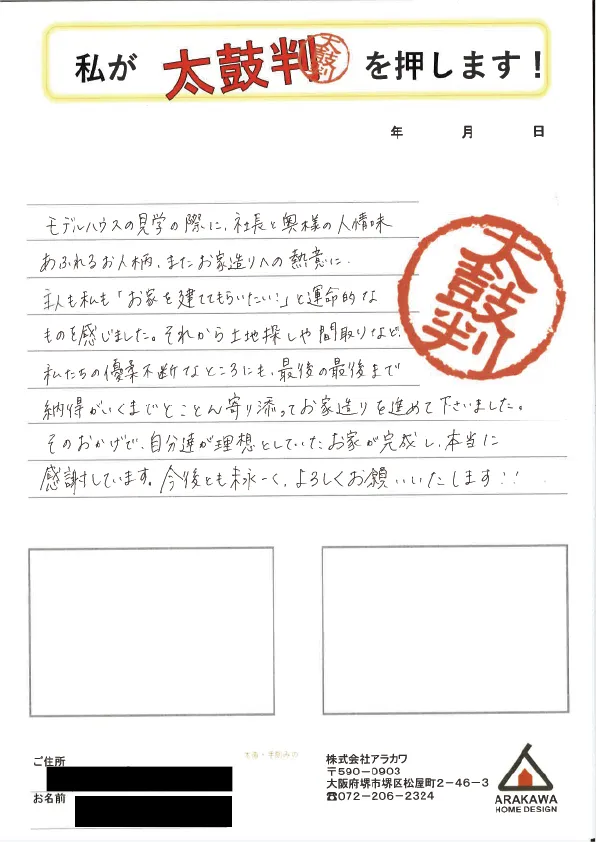 私が 太鼓判 太鼓判 を押します！
年 月 日
モデルハウスの見学の際に、社長と奥様の人情味
あふれるお人柄、またお家造りへの熱意に
主人も私も「お家を建ててもらいたい！」と運命的な
ものを感じました。それから土地探しや間取りなど、
私たちの優柔不断なところにも、最後の最後まで
納得がいくまでとことん寄り添ってお家造りを進めて下さいました。
そのおかげで、自分達が理想としていたお家が完成し、本当に
感謝しています。今後とも末永ーく、よろしくお願いいたします！！
太鼓判
ご住所
お名前
株式会社アラカワ
〒590-0903
大阪府堺市堺区松屋町2-46-3
☎072-206-2324
ARAKAWA
HOME DESIGN